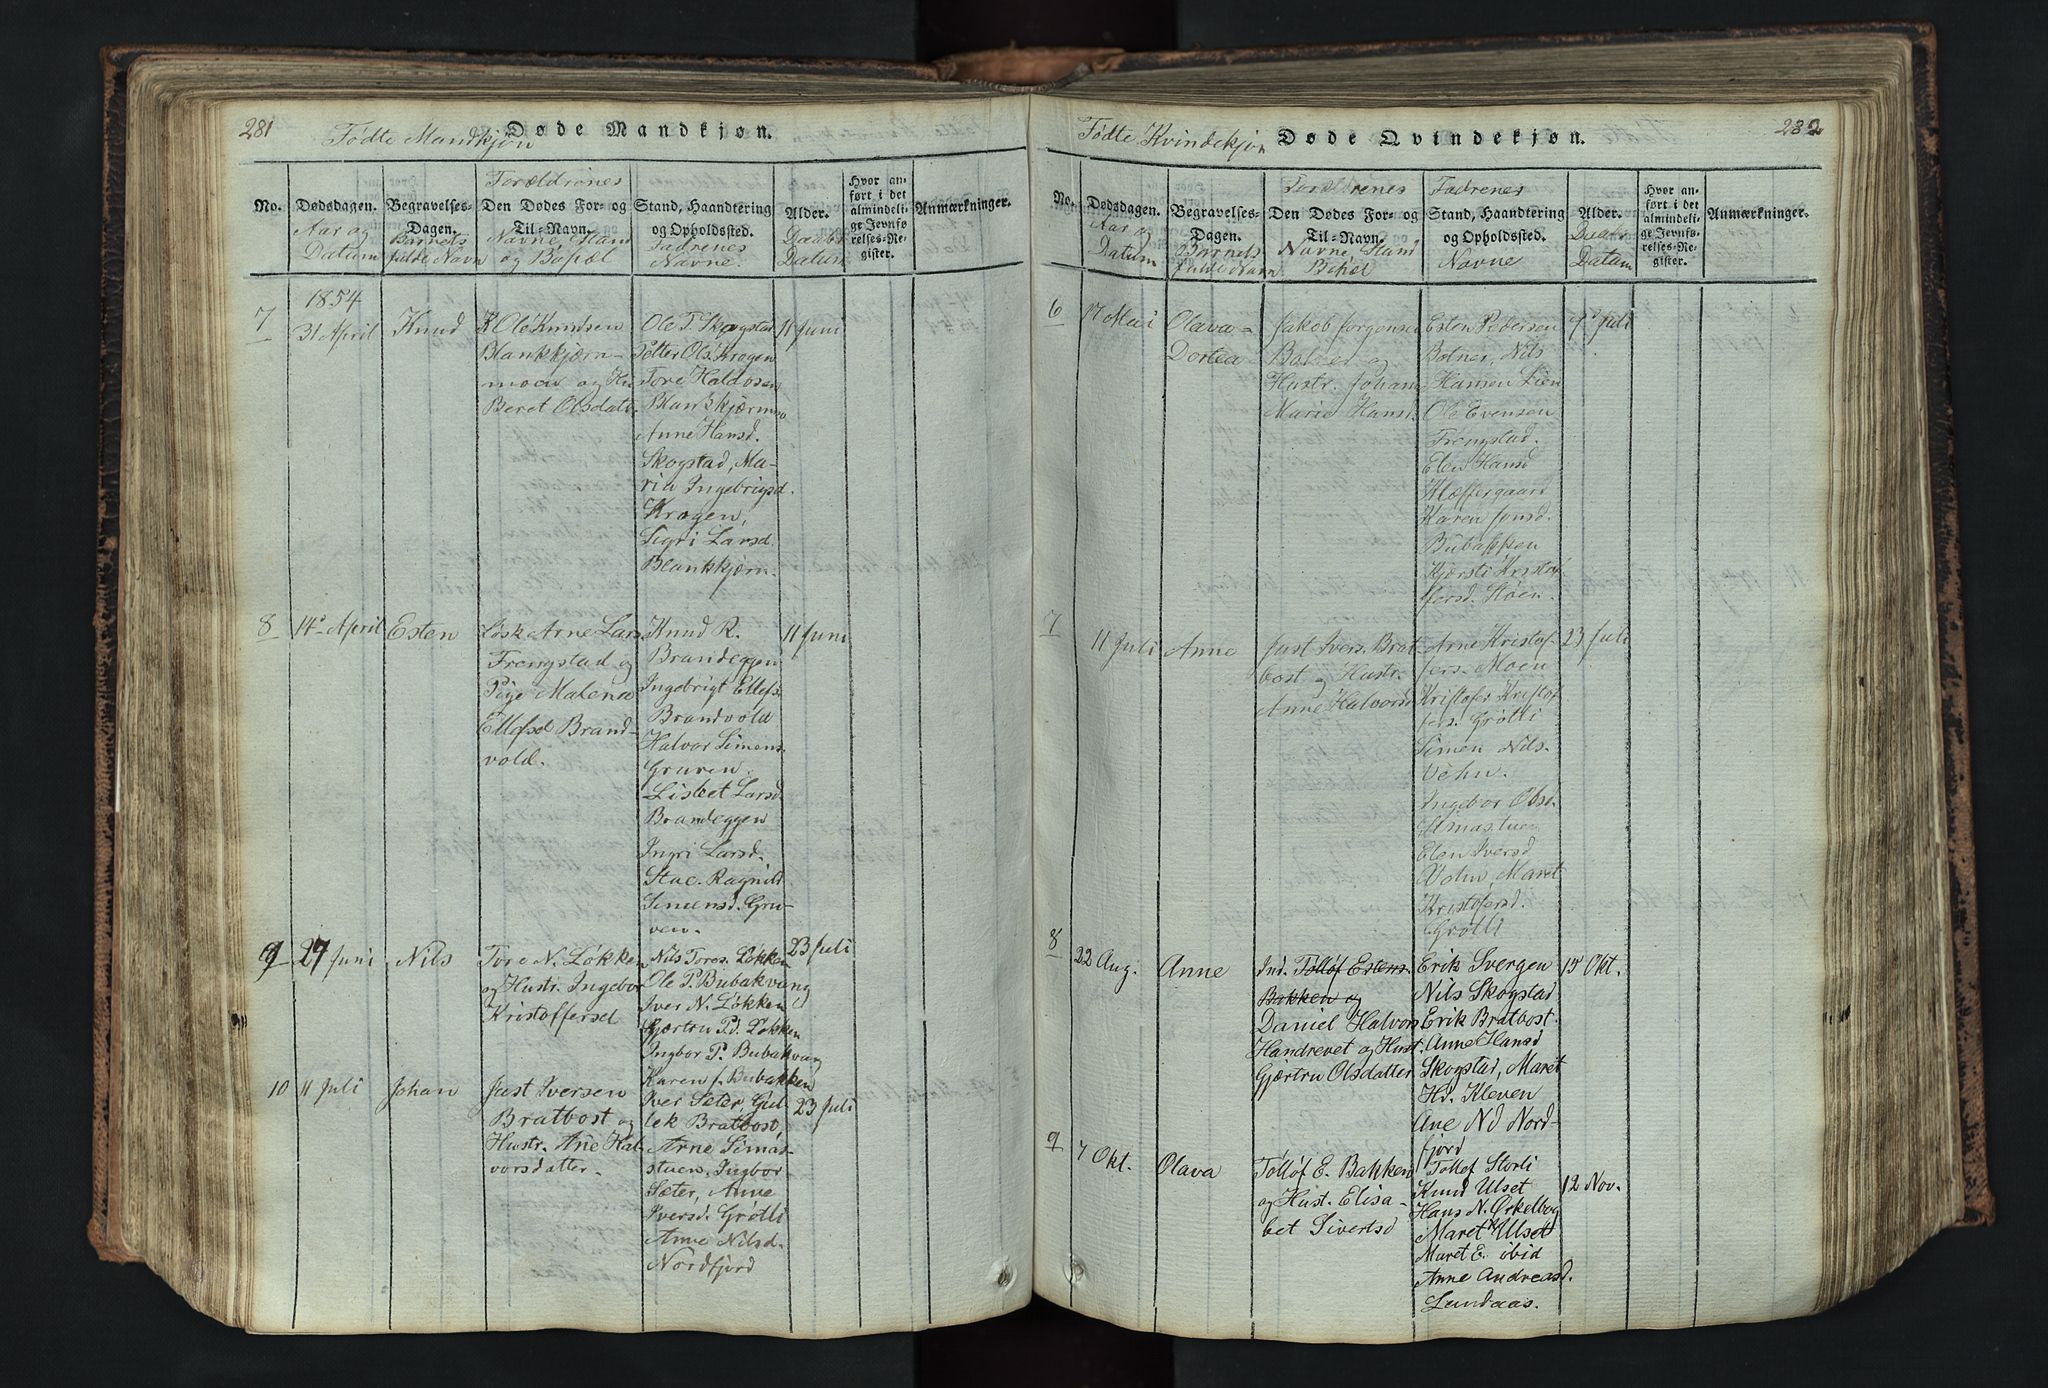 281
Fødte Mandkjøn Døde Mandkjøn.
No.
Dødsdagen.
Aar og
Datum
Begravelses-
Dagen.
Barnets
fulde Navn
Forældrenes
Den Dødes For- og
Til-Navn.
Navne, Stand
og Bopæl
Stand, Haandtering
og Opholdssted.
Fadrenes
Navne.
Alder.
Daabs
Datum
Hvor an-
ført i det
almindeli-
ge Jevnfø-
relses-Re-
gister.
Anmærkninger.
1854
7
31 April
Knud
Ole Knudsen
Blankkjærn-
moen og Hu
Beret Olsdatr.
Ole T. Skogstad
Petter Ols. Krogen
Tore Haldosen
Blankkjærnmo
Anne Hansd.
Skogstad, Ma-
ria Ingebrigsd.
Krogen,
Sigri Larsd.
Blankkjærn-
11 Juni
8
14de April
Esten
Arne Lars
Frengstad og
Pige Malena
Ellefsd Brand-
vold.
Knud R.
Brandeggen
Ingebrigt Ellefs.
Brandvold
Halvor Simens.
Gruven.
Lisbet Larsd.
Brandeggen
Ingri Larsd.
Stue. Ragnild
Simensd. Gru-
ven-
11 Juni
9
27 Juni
Nils
Tore N. Løkken
og Hustr. Ingebor
Kristoffersd
Nils Tores. Løkken
Ole P. Bubakvang
Iver N. Løkken
Gjærtru Pd. Løkken
Ingbor P. Bubakvang
Karen J. Bubakken
23 Juli
10
11 Juli
Johan
Just Iversen
Bratbost og
Hustr. Ane Hal-
vorsdatter-
Iver Seter, Gul-
lek Bratbost,
Arne Simas-
stuen, Ingbor
Sæter, Anne
Iversd. Grøtli
Anne Nilsd-
Nordfjord
23 Juli
282
Fødte Kvindekjøn Døde Qvindekjøn.
No.
Dødsdagen.
Aar og
Datum
Begravelses-
Dagen.
Barnets
fulde Navn
Forældrenes
Den Dødes For- og
Til-Navn.
Navne, Stand
Stand, Haandtering
og Opholdssted.
Fadrenes
Navne
Alder.
Daabs
Datum
Hvor an-
ført i det
almindeli-
ge Jevnfø-
relses-Re-
gister.
Anmærkninger.
6
17 Mai
Olava-
Dortea
Jakob Jørgensen
Botner og
Hustr. Johan
Marie Hansd.
Esten Pedersen
Botner, Nils
Hansen Lien
Ole Evensen
Frengstad.
Elen Hansd
Klæftergaard
Karen Jonsd.
Bubakken
Kjersti Kristof-
fersd. Moen.
9de Juli
7
11 Juli
Anne
Just Ivers. Brat
bost og Hustr.
Anne Halvorsd
Arne Kristof-
fers. Moen
Kristofer Kristof-
fers. Grøtli
Simen Nils.
Vohn.
Ingebor Olsd.
Simastuen
Elen Iversd
Vohn, Maret
Kristofersd.
Grøtli
23 Juli
8
22 Aug.
Anne
Ind. Tolløf Estens.
Bakken og
Daniel Halvors
Handrevet og Hust.
Gjærtru Olsdatter
Erik Svergen
Nils Skogstad
Erik Bratbost.
Anne Hansd
Skogstad, Maret
Hd. Kleven
Ane Nd Nord-
fjord
15 Okt.
9
7 Okt.
Olava
Tolløf E. Bakken
og Hust. Elisa-
bet Sivertsd
Tollof Storli
Knud Ulset
Hans N. Ørkelbog
Maret K Ulset
Maret E. ibid
Anne Andreasd.
Lundaas.
12 Nov.